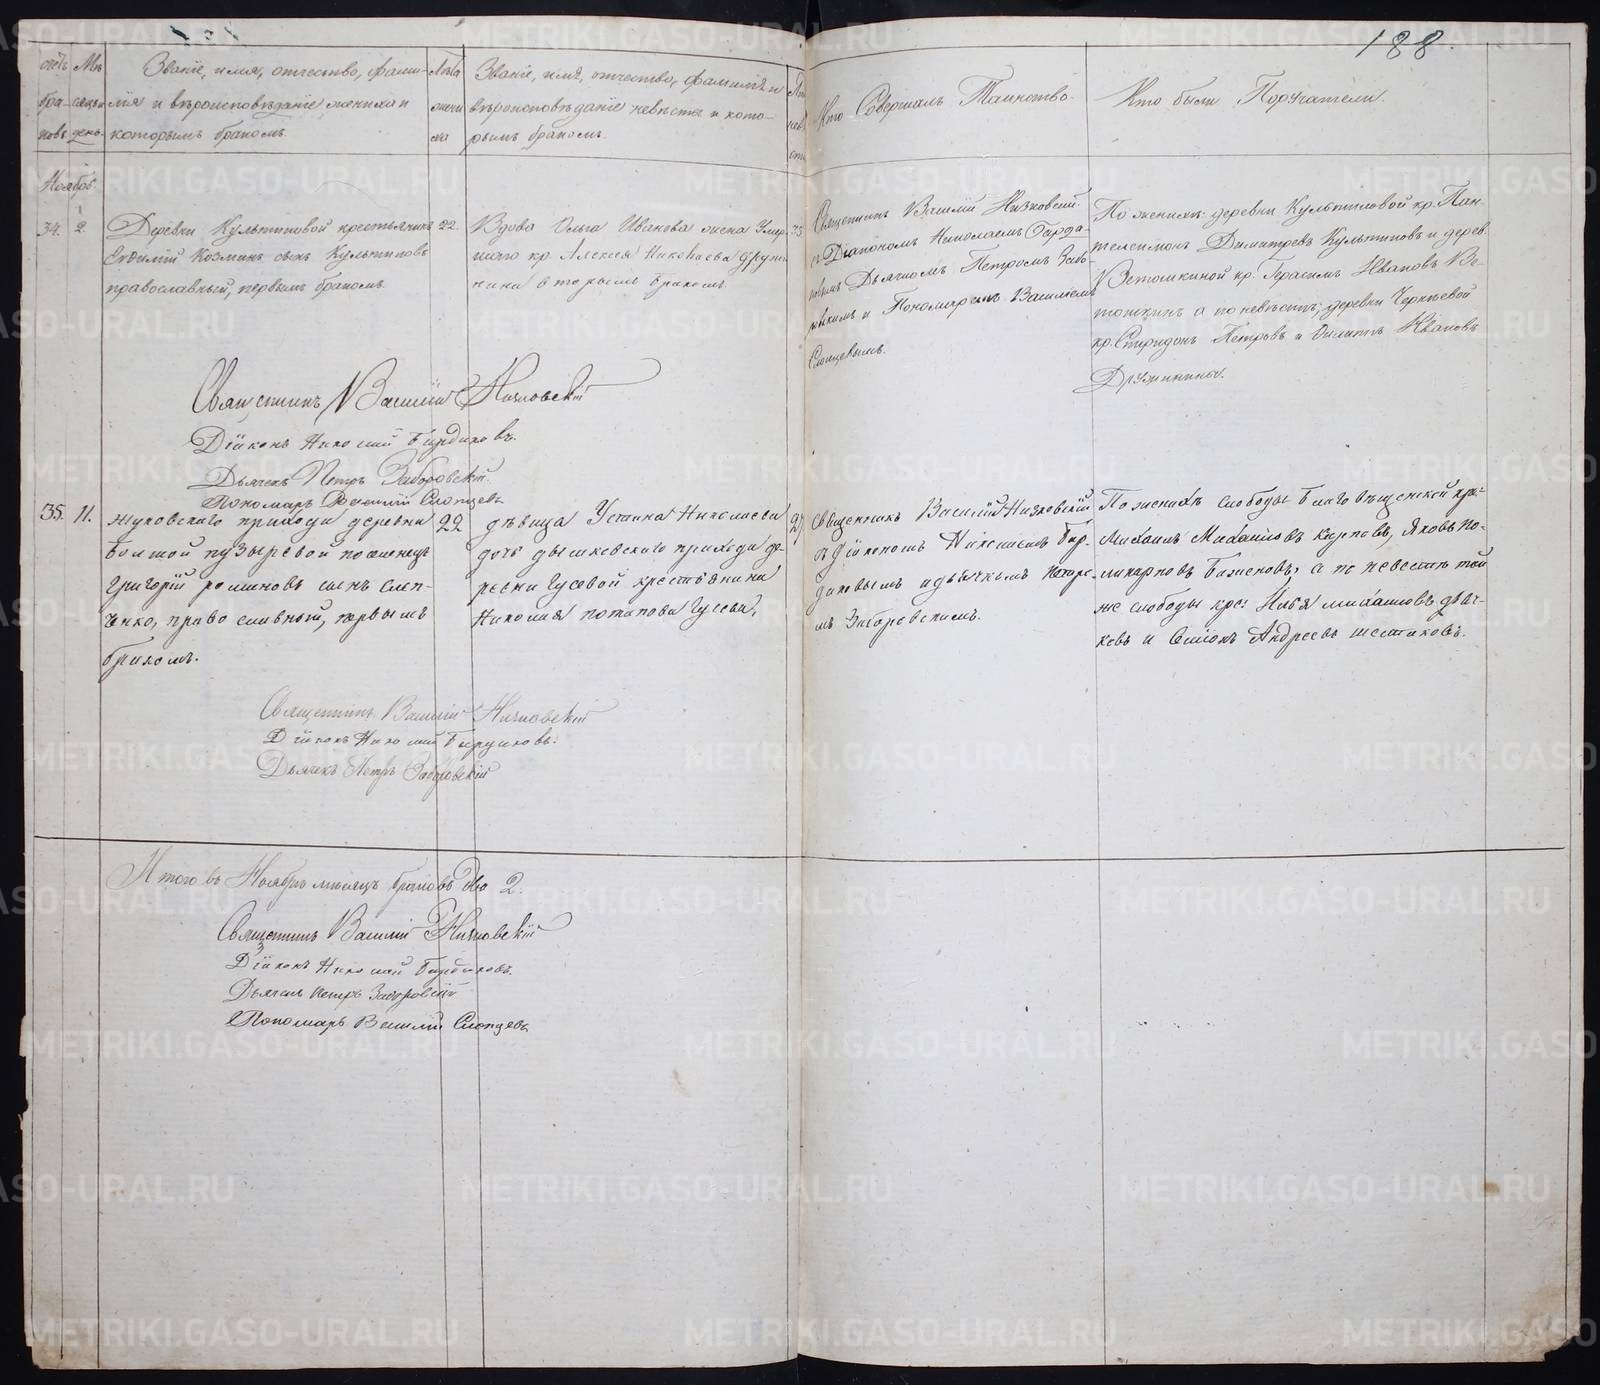 188.
счетъ бра-ковъ
Мѣ-сяцъ и день.
Званіе, имя, отчество, фами-
лія и вѣроисповѣданіе жениха и
которымъ бракомъ.
Лѣта жени-ха
Званіе, имя, отчество, фамилія и
вѣроисповѣданіе невѣсты и кото-
рымъ бракомъ.
Кто Совершалъ Таинство.
Кто были Поручатели.
Ноябрь
34. 2.
Деревни Культиковой крестьянинъ
Евдимій Козминъ сынъ Культиковъ
православный, первымъ бракомъ.
22.
Вдова Ольга Иванова жена Умер-
шаго кр. Алексея Николаева Дружи-
нина вторымъ бракомъ.
35
Священникъ Василій Низковскій
съ Діакономъ Николаемъ Бирда-
ковымъ Дьячкомъ Петромъ Забо-
ровскимъ и Пономаремъ Василіемъ
Слопцевымъ.
По женихѣ: деревни Культиковой кр. Пан-
телеимонъ Димитревъ Культиковъ и дерев.
Ветошкиной кр. Герасимъ Ивановъ Ве-
тошкинъ а по невѣстѣ; деревни Черняевой
кр. Спиридонъ Петровъ и Филиппъ Ивановъ
Дружинины.
Священникъ Василій Низковскій
Діаконъ Николай Бирдаковъ.
Дьячекъ Петръ Заборовскій.
Пономарь Василій Слопцевъ
35. 11.
жуковскаго прихода деревни
Большой пузыревой поселенецъ
Григорій романовъ сынъ Слеп-
ченко, православный, первымъ
бракомъ.
22
дѣвица Устина Николаева
дочь дымковскаго прихода де-
ревни Гусевой крестьянина
Николая потапова Гусева,
27
Священникъ Василій Низковскій
съ діакономъ Николаемъ Бир-
даковымъ и дьячкомъ Петро-
мъ Заборовскимъ.
По женихѣ слободы Благовѣщенской кре:
Михаилъ Михайловъ карповъ, Яковъ по-
ликарповъ Баженовъ, а по невестѣ той
же слободы кре: Илья михайловъ дьяч-
ковъ и Семіонъ Андреевъ шестаковъ.
Священникъ Василій Низковскій
Діаконъ Николай Бирдаковъ.
Дьячекъ Петръ Заборовскій
Итого въ Ноябрѣ мѣсяцѣ браковъ два 2.
Священникъ Василій Низковскій
Діаконъ Николай Бирдаковъ.
Дьячекъ Петръ Заборовскій
Пономарь Василій Слопцевъ
METRIKI.GASO-URAL.RU